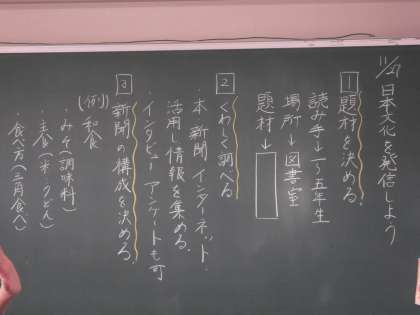 11/27 日本文化を発信しよう
1 題材を決める。
読み手→一~五年生
場所→図書室
題材→
2 くわしく調べる
・本 新聞 インターネット
活用し情報を集める。
・インタビュー アンケートも可
3 新聞の構成を決める。
(例) 和食
・みそ(調味料)
・主食(米・うどん)
・食べ方(三角食べ)